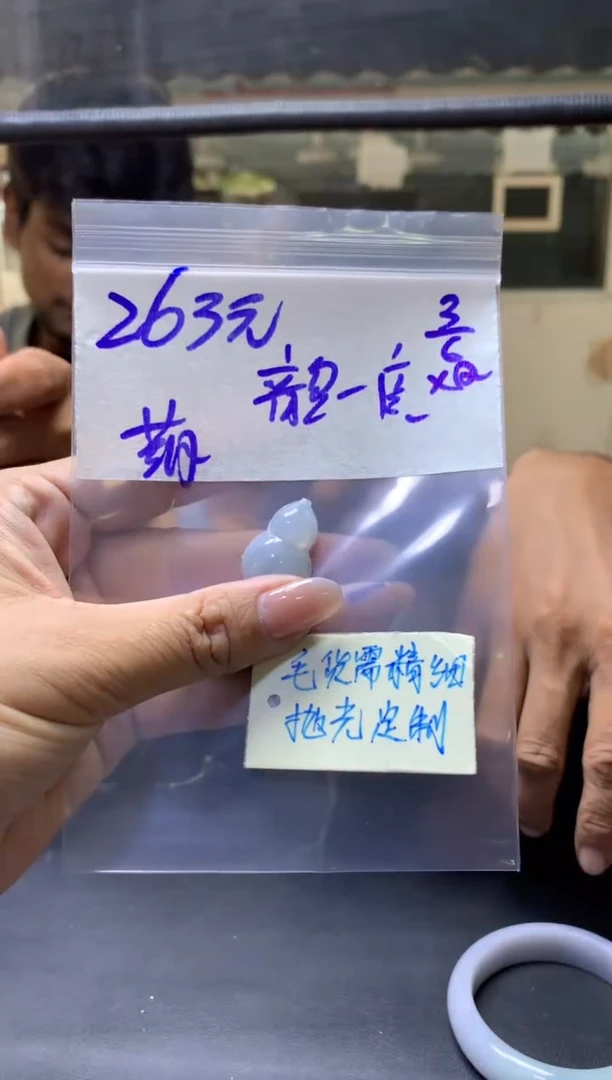 263元
3/5
龍一
葫
毛货需精细
抛光定制